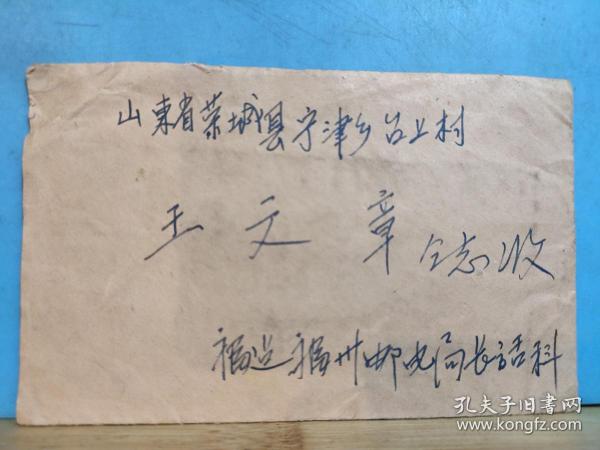 山東省荣城县宁津乡台上村
王文章
仝志收
福建福州邮电局长话科
孔夫子旧书网
www.kongfz.com